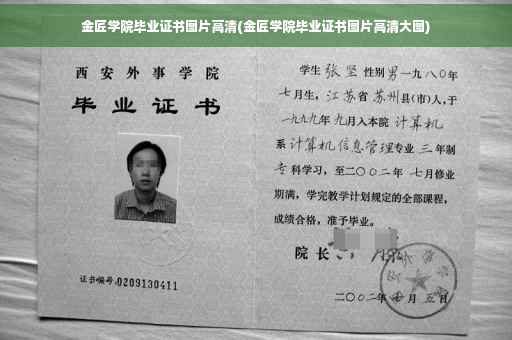 金匠学院毕业证书图片高清(金匠学院毕业证书图片高清大图)
西安外事学院
毕业证书
证书编号:0209130411
学生张坚性别男一九八〇年
七月生,江苏省苏州县(市)人,于
一九九九年九月入本院计算机
系计算机信息管理专业三年制
专科学习,至二〇〇二年七月修业
期满,学完教学计划规定的全部课程,
成绩合格,准予毕业。
院长
二〇〇二年 月五日